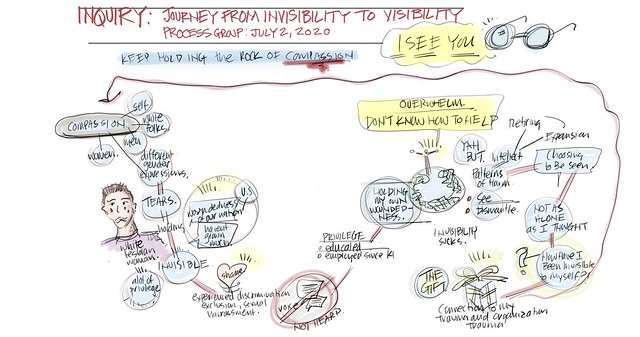 INQUIRY: JOURNEY FROM INVISIBILITY TO VISIBILITY
PROCESS GROUP: JULY 2, 2020
I SEE YOU
KEEP HOLDING the ROCK OF COMPASSION
COMPASSION
self
white folks.
men
women.
different
gender
expressions.
TEARS.
holding
INVISIBLE
white
lesbian
woman.
a lot of
privilege
U.S
woundedness
of our nation
haven't
grown
much
shame
experienced discrimination
exclusion, sexual
harrassment.
VOICE
NOT HEARD.
PRIVILEGE
educated
employed since
HOLDING
MY OWN
WOUNDED-
NESS.
OVERWHELM.
DON'T KNOW HOW TO HELP
YAH
BUT.
Intellect
Retiring
Expansion
Patterns
of harm
see
Dismantle.
INVISIBILITY
SUCKS.
Choosing
to be seen.
NOT AS
ALONE
AS I THOUGHT
?
How have I
Been invisible
to myself?
THE
GIFT
Connection to my
trauma and organization
trauma.